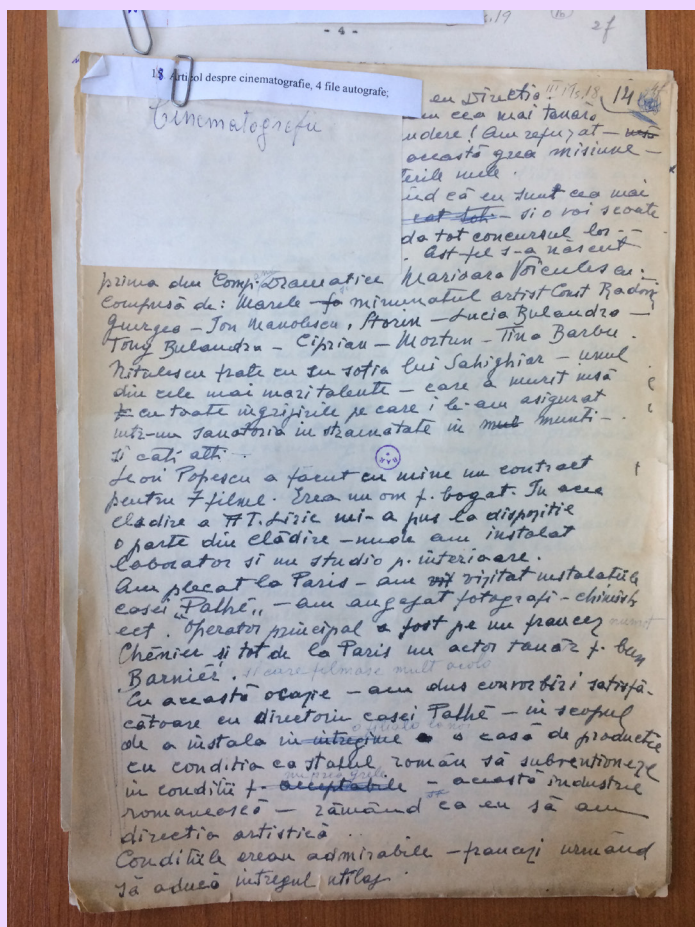 19
27
- 4 -
18. Articol despre cinematografie, 4 file autografe;
Cinematografie
en Directia!
III Ms. 18
14
cea mai tanără
! Am refuzat –
această grea misiune –
mele.
că eu sunt cea mai
– si o voi scoate
da tot concursul lor --
Ast-fel s-a născut
prima din Comp. Dramatice Marioara Voiculescu –
compusă de: Marele – minunatul artist Const Radovici
Giurgea – Ion Manolescu, Storin – Lucia Bulandra –
Tony Bulandra – Ciprian – Mortun – Tina Barbu.
Nitulescu frate cu sotia lui Sahighian – unul
din cele mai mari talente – care a murit însă
cu toate îngrijirile pe care i le-am asigurat
intr-un sanatoriu in strainatate in munti –
si cați alti ..
Leon Popescu a făcut cu mine un contract
pentru 7 filme. Erea un om f. bogat. In acea
clădire a T. Liric mi-a pus la dispozitie
o parte din clădire – unde am instalat
laborator si un studio p. interioare.
Am plecat la Paris – am vizitat instalatiile
casei "Pathé" – am angajat fotografi – chimisti
ect. Operator principal a fost pe un francez numit
Chénier si tot de la Paris un actor tanăr f. bun
Barnier. si care filmase mult acolo
Cu această ocazie – am dus convorbiri satisfă-
cătoare cu directorii casei Pathé – in scopul
de a instala in intregime o casă de productie
cu conditia ca statul român să subventioneze
in conditii f. acceptabile – această industrie
romanească – rămând ca eu să am
directia artistică ..
Conditiile ereau admirabile – francezi urmând
să aducă intregul utilaj.